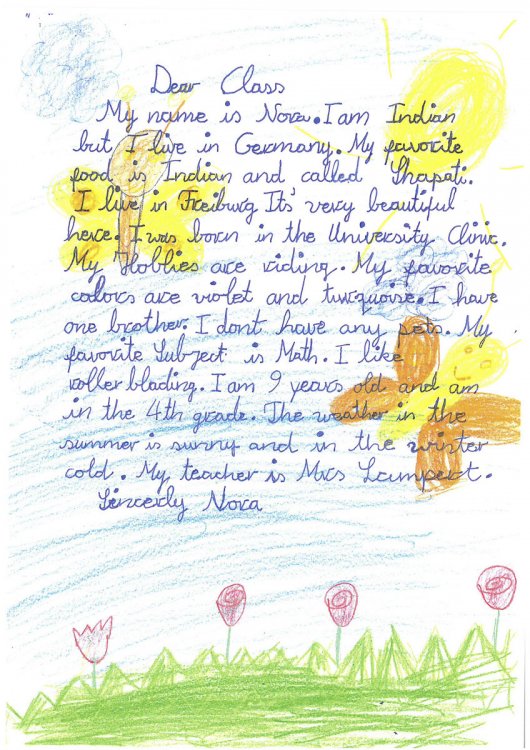 Dear Class
My name is Nora. I am Indian
but I live in Germany. My favorite
food is Indian and called Shapati.
I live in Freiburg It's very beautiful
here. I was born in the University Clinic.
My Hobbies are riding. My favorite
colors are violet and turquoise. I have
one brother. I dont have any pets. My
favorite Subject is Math. I like
rollerblading. I am 9 years old and am
in the 4th grade. The weather in the
summer is sunny and in the winter
cold. My teacher is Mrs Lampert.
Sincerly Nora